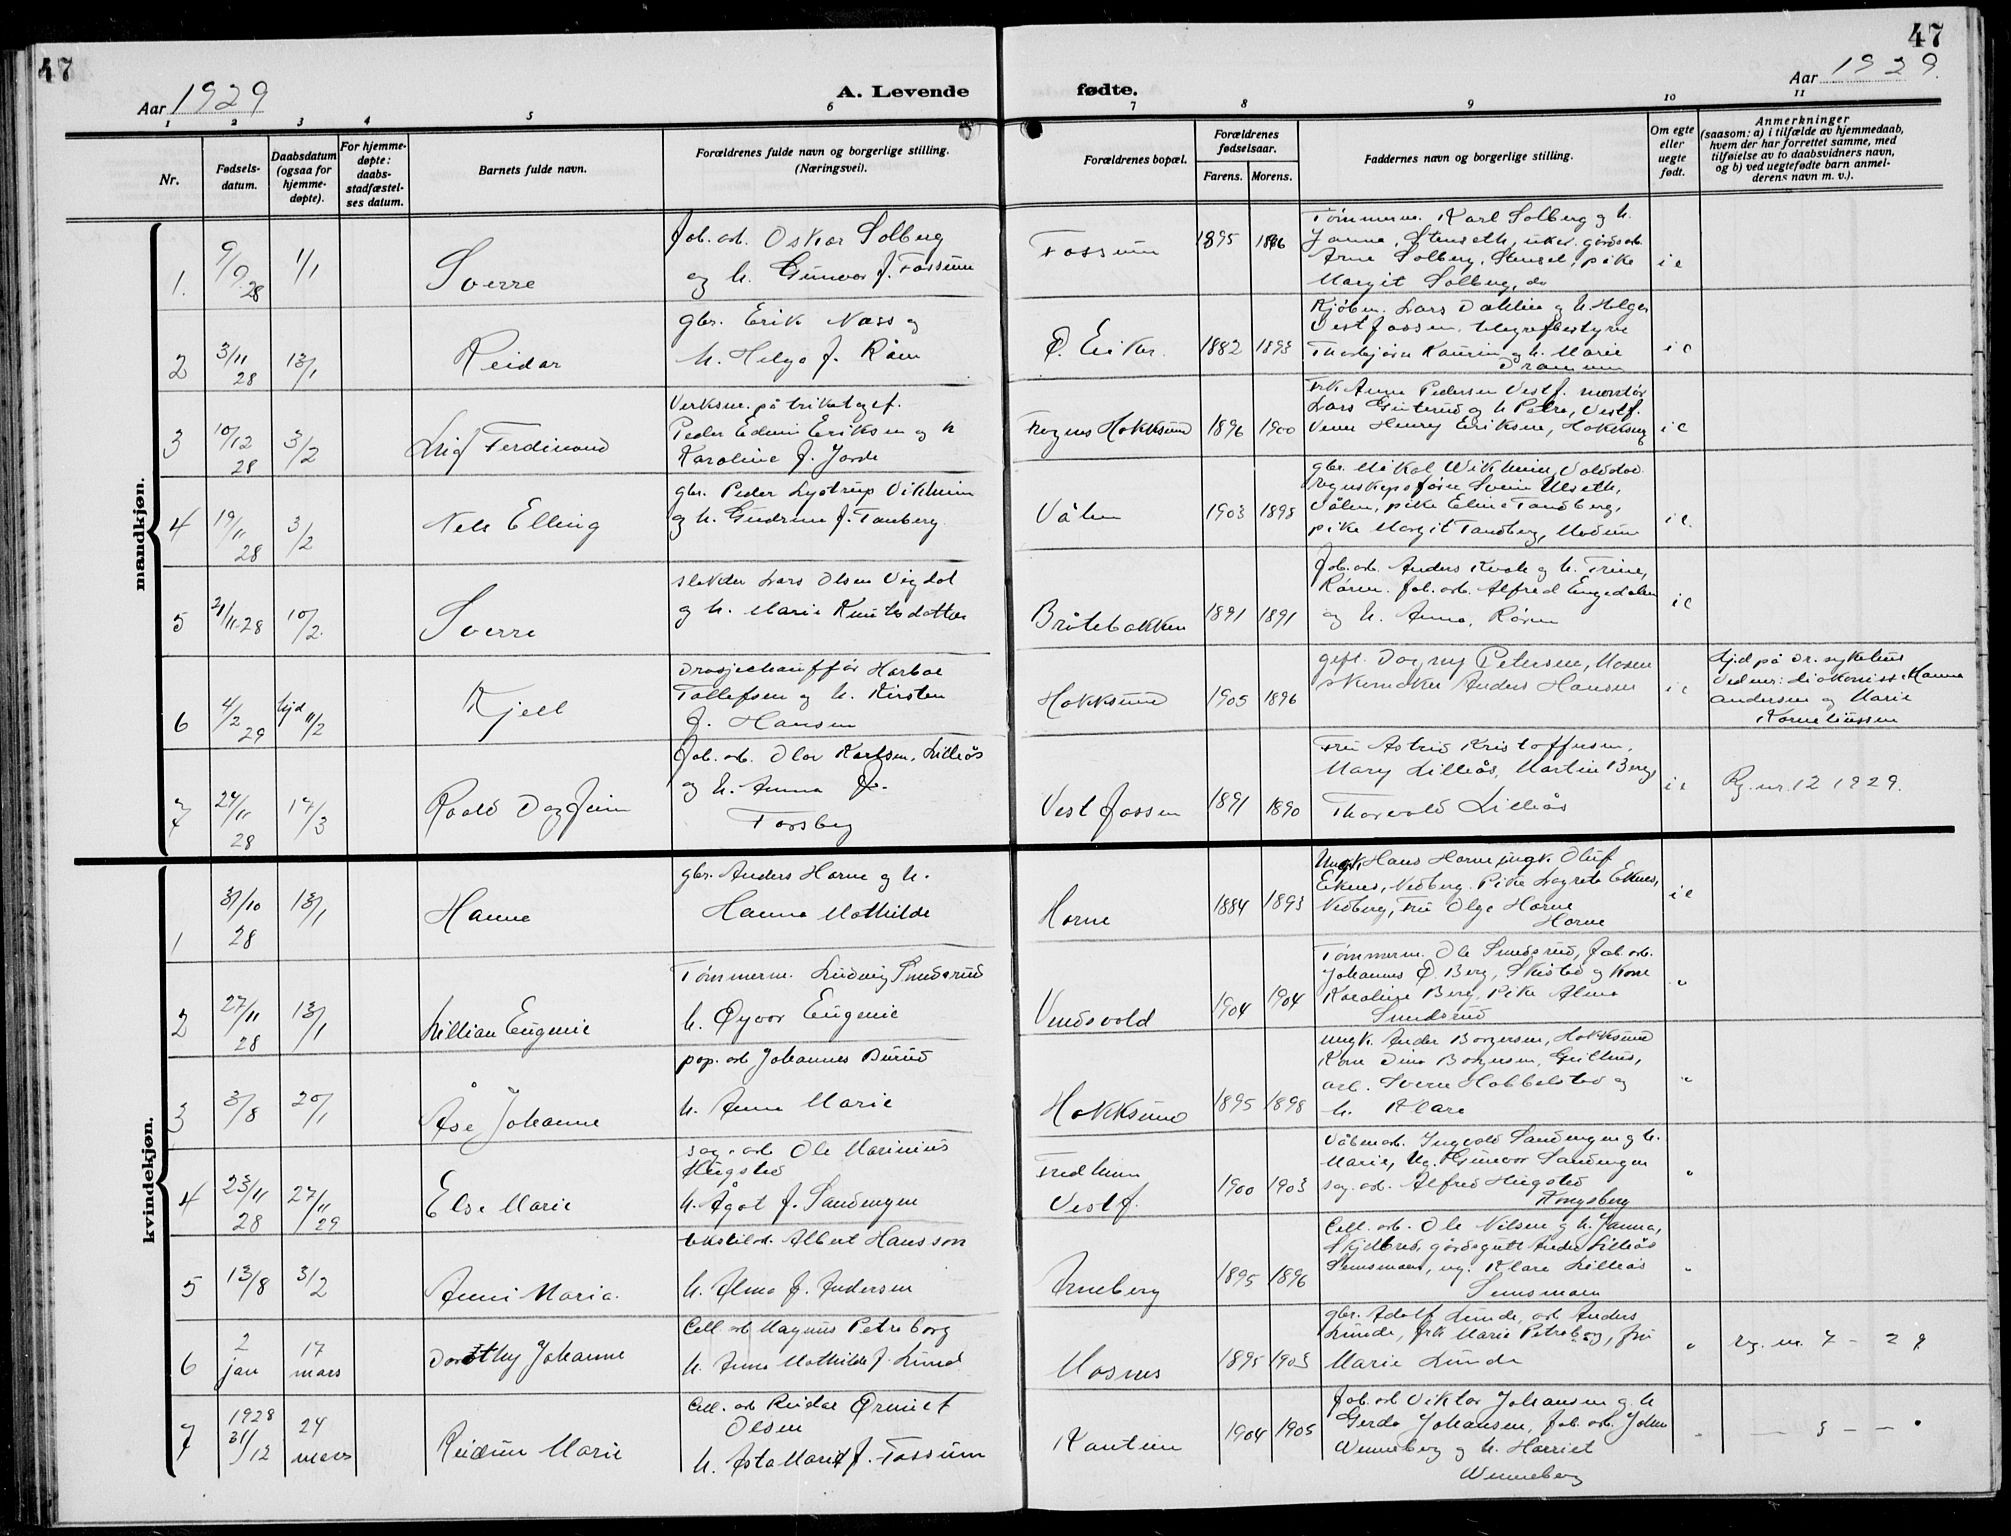 47
47
Aar 1929
A. Levende
fødte.
Aar 1929.
1 2 3 4 5 6 7 8 9 10 11
Nr.
Fødsels-
datum.
Daabsdatum
(ogsaa for
hjemme-
døpte).
For hjemme-
døpte:
daabs-
stadfæstel-
ses datum.
Barnets fulde navn.
Forældrenes fulde navn og borgerlige stilling.
(Næringsvei).
Forældrenes bopæl.
Forældrenes
fødselsaar.
Farens. Morens.
Faddernes navn og borgerlige stilling.
Om egte
eller
uegte
født.
Anmerkninger
(saasom: a) i tilfælde av hjemmedaab,
hvem der har forrettet samme, med
tilføielse av to daabsvidners navn,
og b) ved uegtefødte barn anmel-
derens navn m. v.).
mandkjøn.
1. 9/9.28 1/1 Sverre
Fab. arb. Oskar Solberg
og h. Gunvor f. Fossum
Fossum 1895 1896
Tømmerm. Karl Solberg g h.
Janna, Stenseth,
Arne Solberg, Stenset, pike
Margit Solberg, do
i e
2 3/11 28 13/1 Reidar
gbr. Erik Næss g
h. Helga f. Råen
Ø. Eiker. 1882 1893
Kjøbm. Lars Dahlin g h. Helga
Vestfossen, telegrafbestyrer
Thorbjørn Kaurin og h. Marie
Drammen
i e
3 10/12 28 3/2 Leif Ferdinand
Verksm. på trikotagef.
Peder Edvin Eriksen og h
Karoline f. Jorde
Hokksund 1896 1900
Frk Anna Pedersen Vestf. montør
Lars og h Petra, Vestf.
Henry Eriksen, Hokksund
i e
4 19/11 28 3/2 Nels Elling
gbr. Peder Lystrup Vikheim
og h. Gudrun f. Tanberg
Vålen 1903 1898
gbr. Mikal Wikheim,
regnskapsfører Svein Ulseth,
Vålen, pike Eline Tandberg,
pike Margit Tandberg, Modum
i e.
5 21/11-28 10/2. Sverre
slakter Lars Olsen Vigdal
og h. Marie Knutsdatter
Bråtebakken 1891 1891
Fab. arb. Anders g h. Trine,
Røren. fab. arb. Alfred Engedalen
og h. Anna, Røren
i e
6 4/2 29 hjd 11/2 Kjell
Drosjechauffør Harbae
Tollefsen og h. Kirsten
f. Hansen
Hokksund 1905 1896
gift. Dagny Petersen, Mosen
skomaker Anders Hansen
i e
Hjd på Dr. sykehus
Vedner: diakonisse Hanna
Andersen og Marie
Korneliussen
7 24/11 28 17/3 Roald Dagfinn
Fab. arb. Olav Karlsen, Lilleås
og h. Anna f.
Forsberg
Vestfossen 1891 1890
Fru Astrid Kristoffersen,
Mary Lilleås, Martin Berg,
Thorvald Lilleås
i e
Rg. nr. 12 1929.
kvindekjøn.
1 31/10 28 13/1 Hanne
gbr. Anders Horne og h.
Hanna Mathilde
Horne 1884 1893
Ungk. Hans Horne, ungk. Oluf
Eknes, Nedberg. Pike Dagrete Eknes,
Nedberg, Fru Olga Horne
Horne
i e
2 27/11 28 13/1 Lillian Eugenie
Tømmerm. Ludvig Smedsrud
h. Øyvor Eugenie
Vendsvold 1904 1904
Tømmerm. Ole Smedsrud, fab. arb.
Johannes Ø. Berg, Skistad og Kone
Karoline Berg, Pike Alma
Smedsrud
"
3 3/8 20/1 Åse Johanne
pap. arb Johannes Burud
h. Anna Marie
Hokksund 1895 1898
ungk. Ander Borgersen, Hokksund
Kone Dina Borgersen,
arb. Sverre Hobbelstad og
h. Klara
"
4 23/11 28 27/11/29 Else Marie
sag. arb Ole Marinius
Hugstad
h. Ågot f. Sandengen
Fredheim
Vestf. 1900 1903
Våbenarb. Ingvald Sandengen g h.
Marie, Ug. Gunvor Sandengen
sag. arb. Alfred Hugstad
Kongsberg
"
5 13/8 3/2 Anni Maria.
tekstilarb. Albert Hansson
h. Alma f. Andersen
Arneberg 1895 1896
Cell. arb. Ole Nilsen g h. Janna,
Skjelbred, gårdsgutt Ander Lilleås
Semsmoen, ug. Klara Lilleås
Semsmoen
"
6 2 jan 17 mars Dorothy Johanne
Cell. arb Magnus Petreborg
h. Anna Mathilde f. Lund
Mosnes 1895 1903
gbr. Adolf Lunde, arb Anders
Lunde, frk Marie Petreborg, fru
Marie Lunde
"
rg. nr. 7 - 29
7 1928 31/12 24 mars Reidun Marie
Cell. arb Reidar Ørmulf
Olsen
h. Asta Marie f. Fossum
Kantum 1904 1905
Fab. arb Viktor Johansen g h
Gerda Johansen, fab. arb. John
Wenneberg og h. Harriet
Wenneberg
"
— 9 — — "